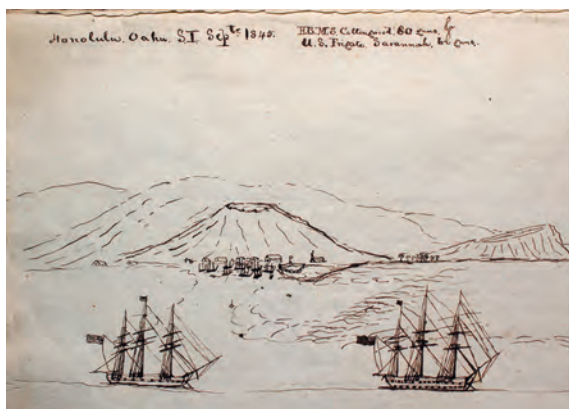 Honolulu. Oahu. S.I. Sepᵗ. 1845.
H.B.M.S. Collingwood. 80 guns. &
U.S. Frigate Savannah, 60 guns.